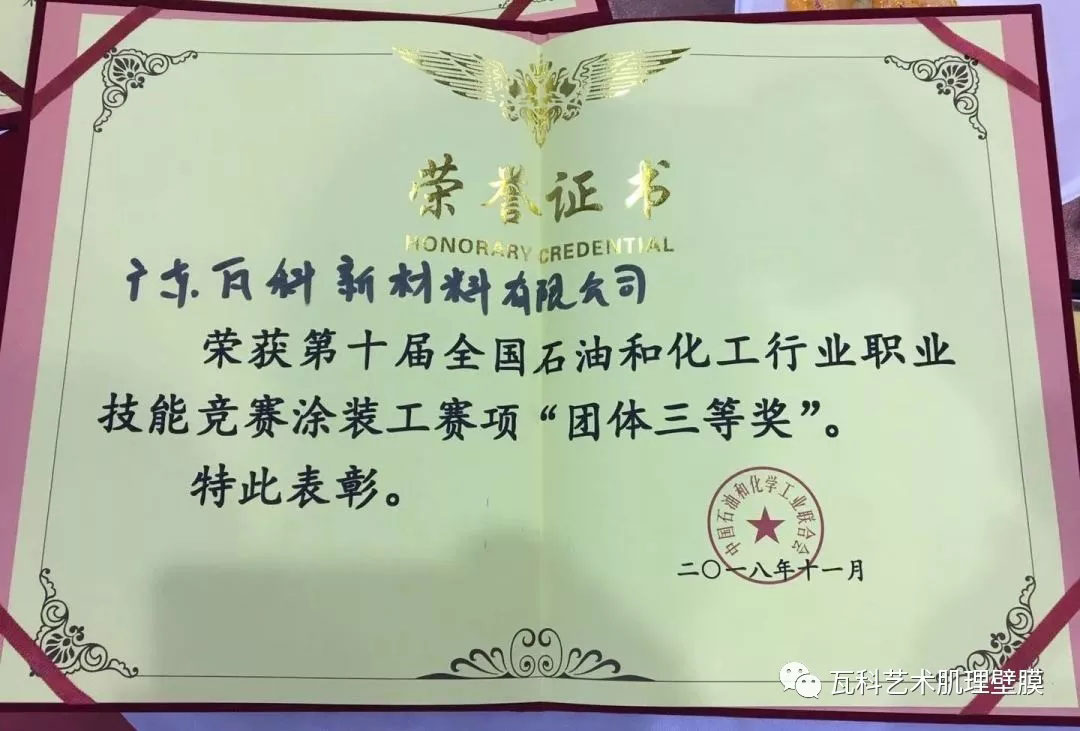 荣誉证书
HONORARY CREDENTIAL
广东瓦科新材料有限公司
荣获第十届全国石油和化工行业职业
技能竞赛涂装工赛项“团体三等奖”。
特此表彰。
中国石油和化学工业联合会
二〇一八年十一月
瓦科艺术肌理壁膜